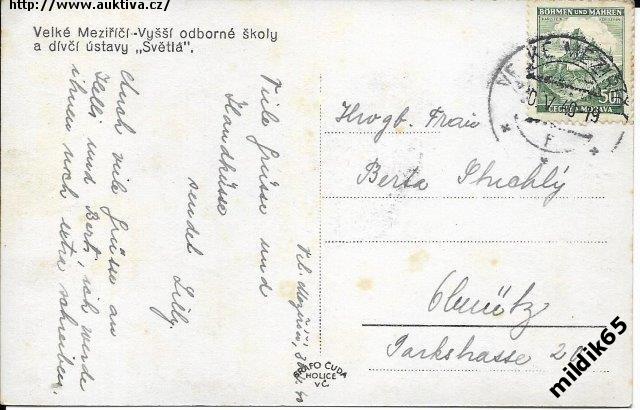 http://www.auktiva.cz/
Velké Meziříčí-Vyšší odborné školy
a dívčí ústavy „Světlá".
Viele Grüsse und
Handküsse
sendet Lilly.
Auch viele Grüsse an
Helli und Berti, ich werde
ihnen noch extra schreiben.
Vel. Meziříčí, 40
BÖHMEN UND MÄHREN
50h
ČECHY A MORAVA
VELKÉ MEZIŘÍČÍ
10 V 40-19
Hrogb. Frau
Berta Stuchlý
Olmütz
Parkstrasse 26
GRAFO ČUDA
HOLICE
V Č.
mildik65